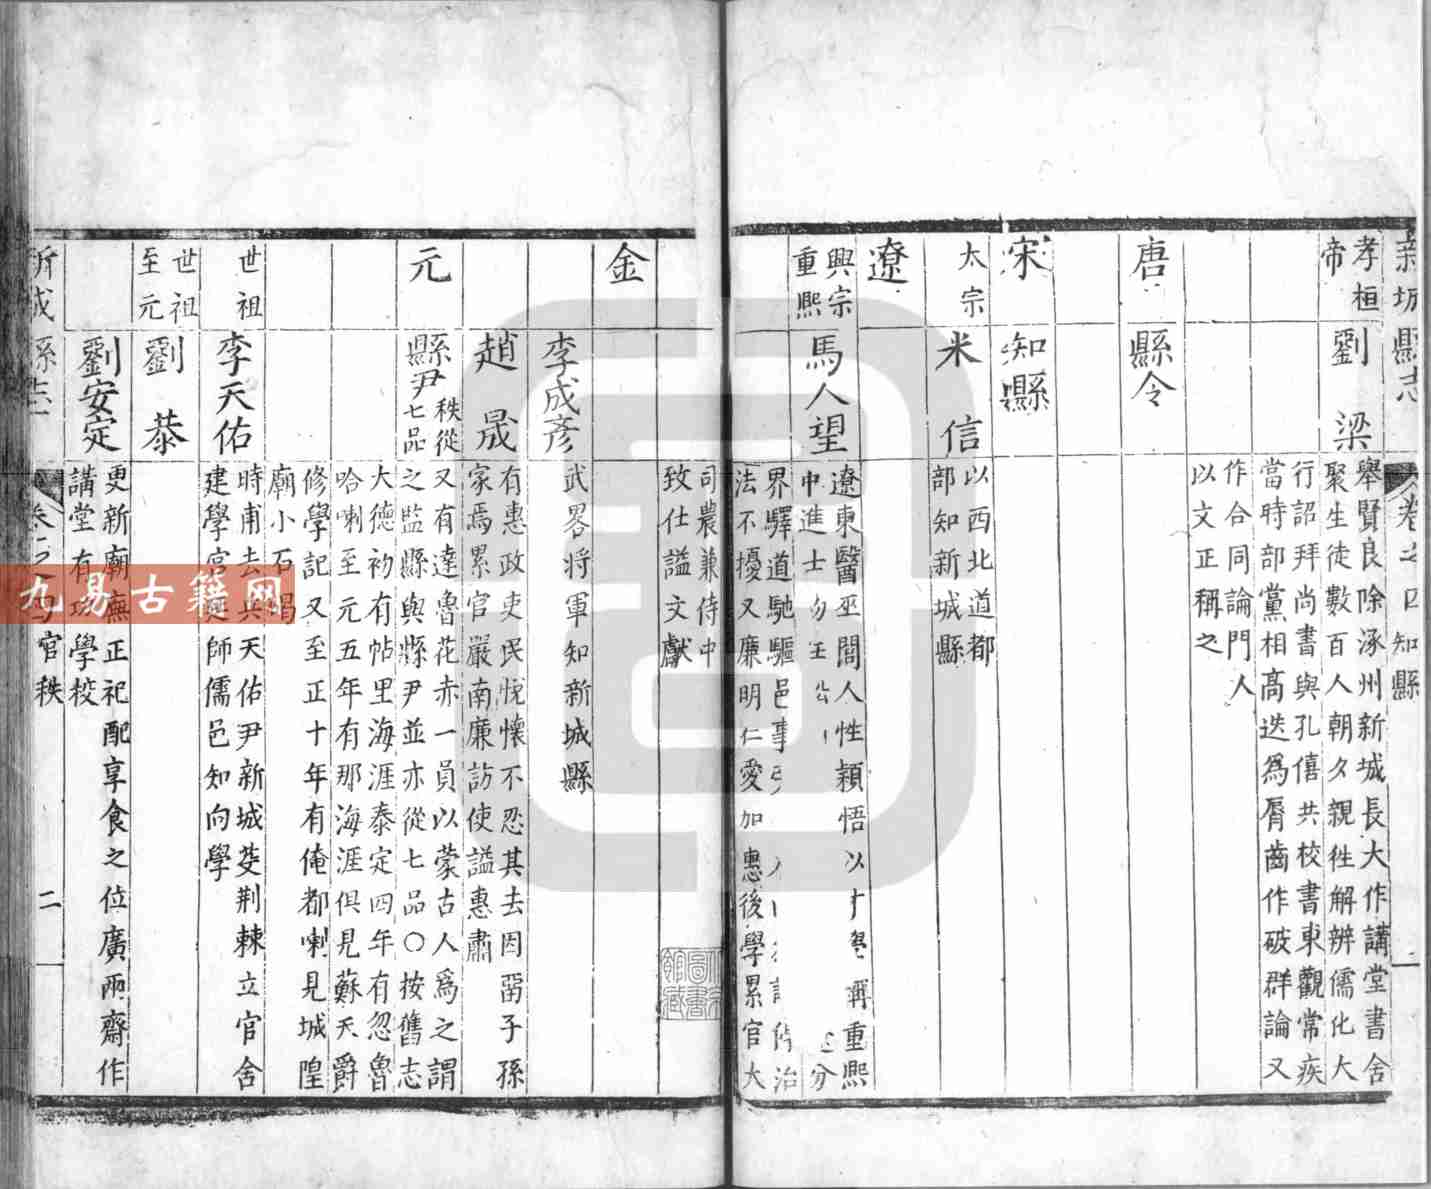 新城縣志 卷之四 知縣 一
孝桓帝
劉梁
舉賢良除涿州新城長大作講堂書舍
聚生徒數百人朝夕親往解辨儒化大
行詔拜尚書與孔僖共校書東觀常疾
當時部黨相高迭爲脣齒作破群論又
作合同論門人
以文正稱之
唐
縣令
宋
知縣
太宗
米信
以西北道都
部知新城縣
遼
興宗重熙
馬人望
遼東醫巫閭人性穎悟以才學稱重熙
中進士
界驛道馳驅邑事
法不擾又廉明仁愛加惠後學累官大
司農兼侍中
致仕謚文獻
金
李成彥
武畧將軍知新城縣
趙晟
有惠政吏民悅懷不忍其去因畱子孫
家焉累官嚴南廉訪使謚惠肅
元
縣尹 秩從七品
又有達魯花赤一員以蒙古人爲之謂
之監縣與縣尹並亦從七品○按舊志
大德初有帖里海涯泰定四年有忽魯
哈喇至元五年有那海涯俱見蘇天爵
修學記又至正十年有俺都喇見城隍
廟小石碣
世祖
李天佑
時甫去兵天佑尹新城芟荆棘立官舍
建學宮延師儒邑知向學
世祖至元
劉恭
劉安定
更新廟廡正祀配享食之位廣兩齋作
講堂有功學校
新城縣志 卷之四 官秩 二
九易古籍网